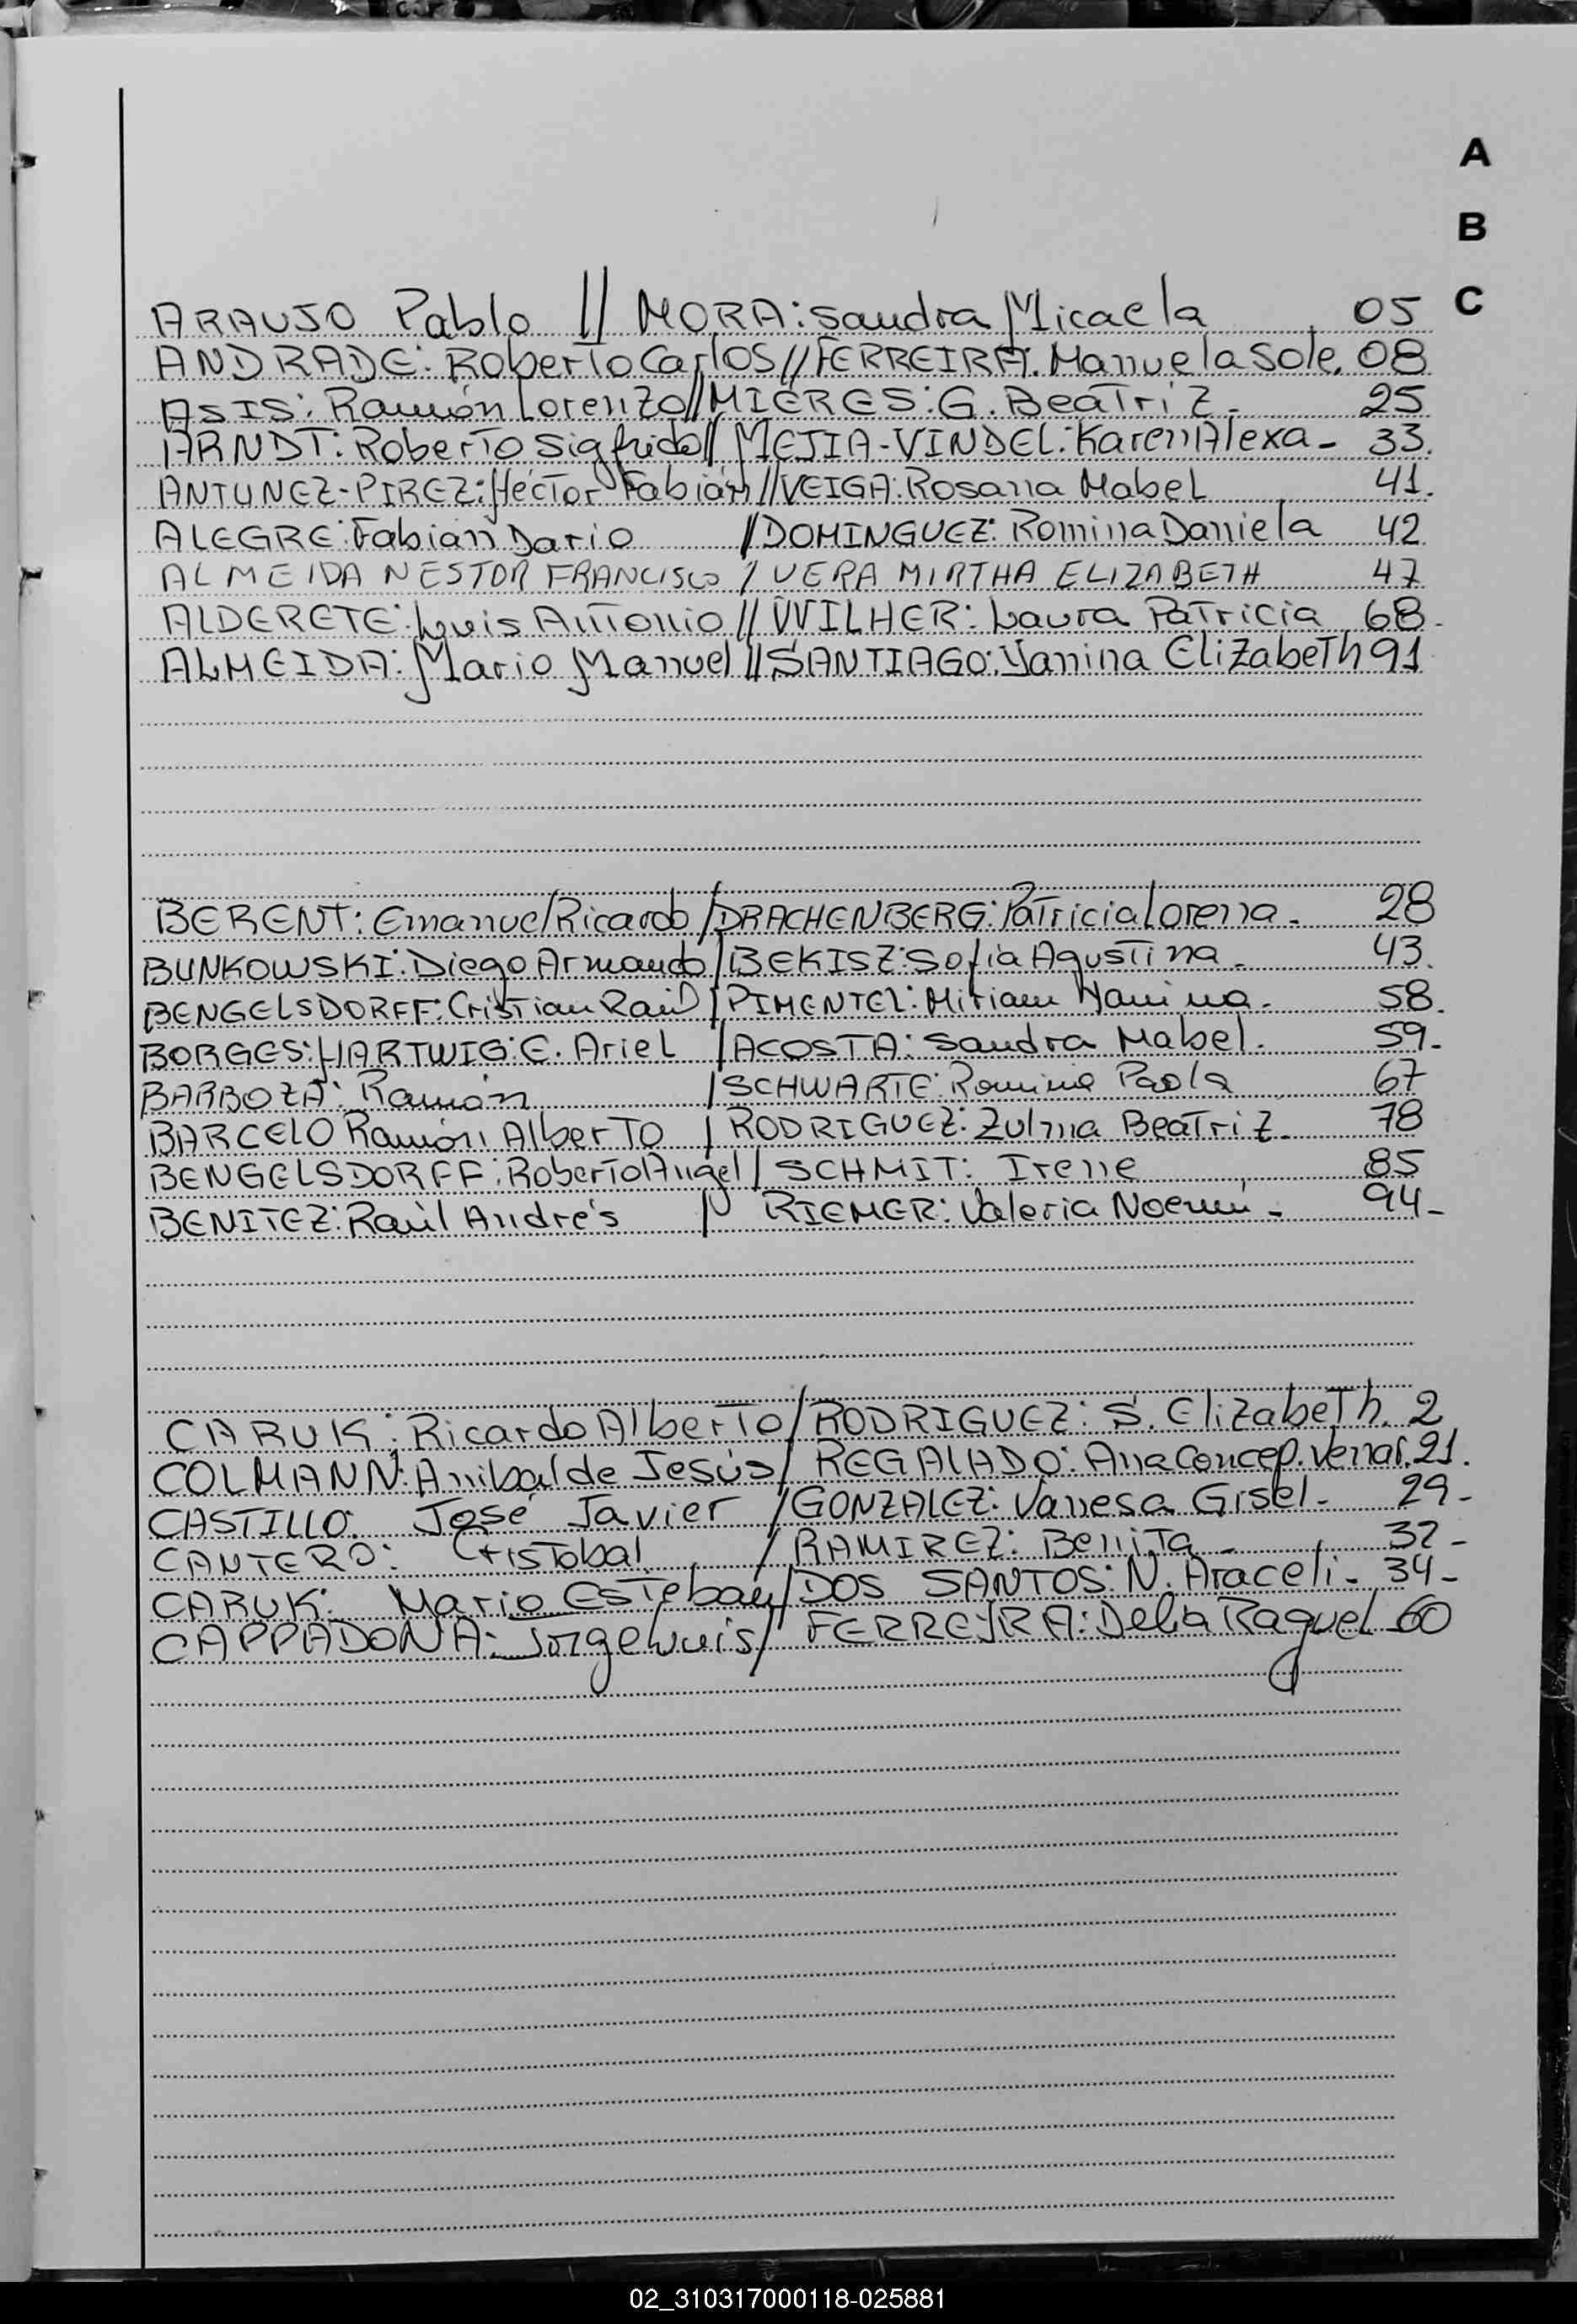 A
B
C
ARAUJO Pablo // MORA: Sandra Micaela 05
ANDRADE: Roberto Carlos // FERREIRA: Manuela Sole. 08
ASIS: Ramón Lorenzo // MIERES: G. Beatriz - 25
ARNDT: Roberto Sigfrido // MEJIA-VINDEL: Karen Alexa - 33.
ANTUNEZ-PIREZ: Héctor Fabián // VEIGA: Rosana Mabel 41.
ALEGRE: Fabián Dario // DOMINGUEZ: Romina Daniela 42
ALMEIDA NESTOR FRANCISCO / VERA MIRTHA ELIZABETH 47
ALDERETE: Luis Antonio // WILHER: Laura Patricia 68-
ALMEIDA: Mario Manuel // SANTIAGO: Yanina Elizabeth 91
BERENT: Emanuel Ricardo / DRACHENBERG: Patricia Lorena - 28
BUNKOWSKI: Diego Armando / BEKISZ: Sofia Agustina - 43.
BENGELSDORFF: Cristian Raúl / PIMENTEL: Miriam Yanina - 58.
BORGES: HARTWIG: E. Ariel / ACOSTA: Sandra Mabel. 59-
BARBOZA: Ramón / SCHWARTE: Romina Paola 67
BARCELO Ramón Alberto / RODRIGUEZ: Zulma Beatriz - 78
BENGELSDORFF: Roberto Angel / SCHMIT: Irene 85
BENITEZ: Raúl Andrés / RIEMER: Valeria Noemí - 94-
CARUK: Ricardo Alberto / RODRIGUEZ: S. Elizabeth. 2
COLMANN: Anibal de Jesús / REGALADO: Ana Concep. 21.
CASTILLO: José Javier / GONZALEZ: Vanesa Gisel - 29-
CANTERO: Cristobal / RAMIREZ: Benita - 32-
CARUK: Mario Esteban / DOS SANTOS: N. Araceli - 34-
CAPPADONA: Jorge Luis / FERREYRA: Delia Raquel 60
02_310317000118-025881